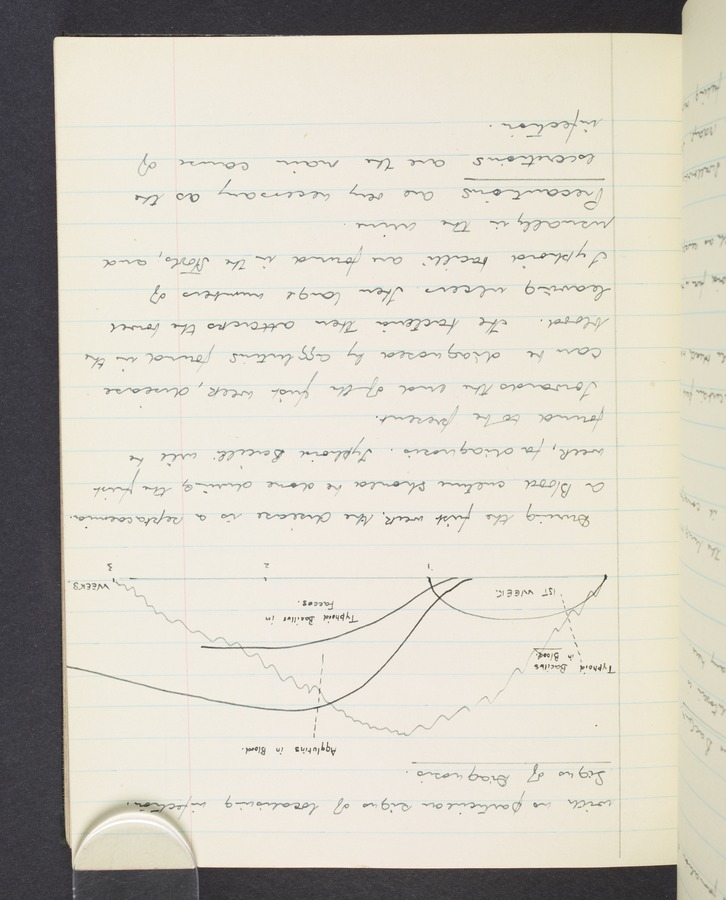 with no particular signs of localising infection.
Signs of Diagnosis.
Agglutins in Blood.
Typhoid Bacillus
in Blood.
Typhoid Bacillus in
Faeces.
1ST WEEK.
1 2 3 WEEKS.
During the first week, the disease is a septacaemia.
a Blood culture should be done during the first
week, for diagnosis. Typhoid Bacilli will be
found to be present.
Towards the end of the first week, disease
can be diagnosed by agglutins found in the
blood. The bacteria then attacks the bowel
leaving ulcers. Then large numbers of
Typhoid bacilli are found in the Stools, and
usually in the urine.
Precautions are very necessary as the
excretions are the main cause of
infection.